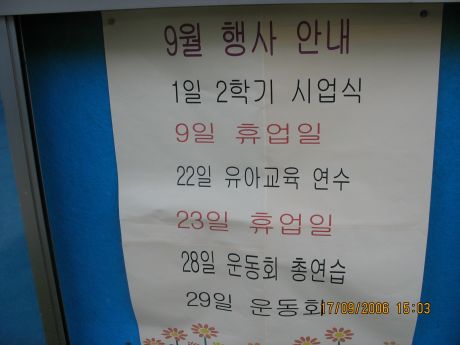 9월 행사 안내
1일 2학기 시업식
9일 휴업일
22일 유아교육 연수
23일 휴업일
28일 운동회 총연습
29일 운동회
17/09/2006 15:03